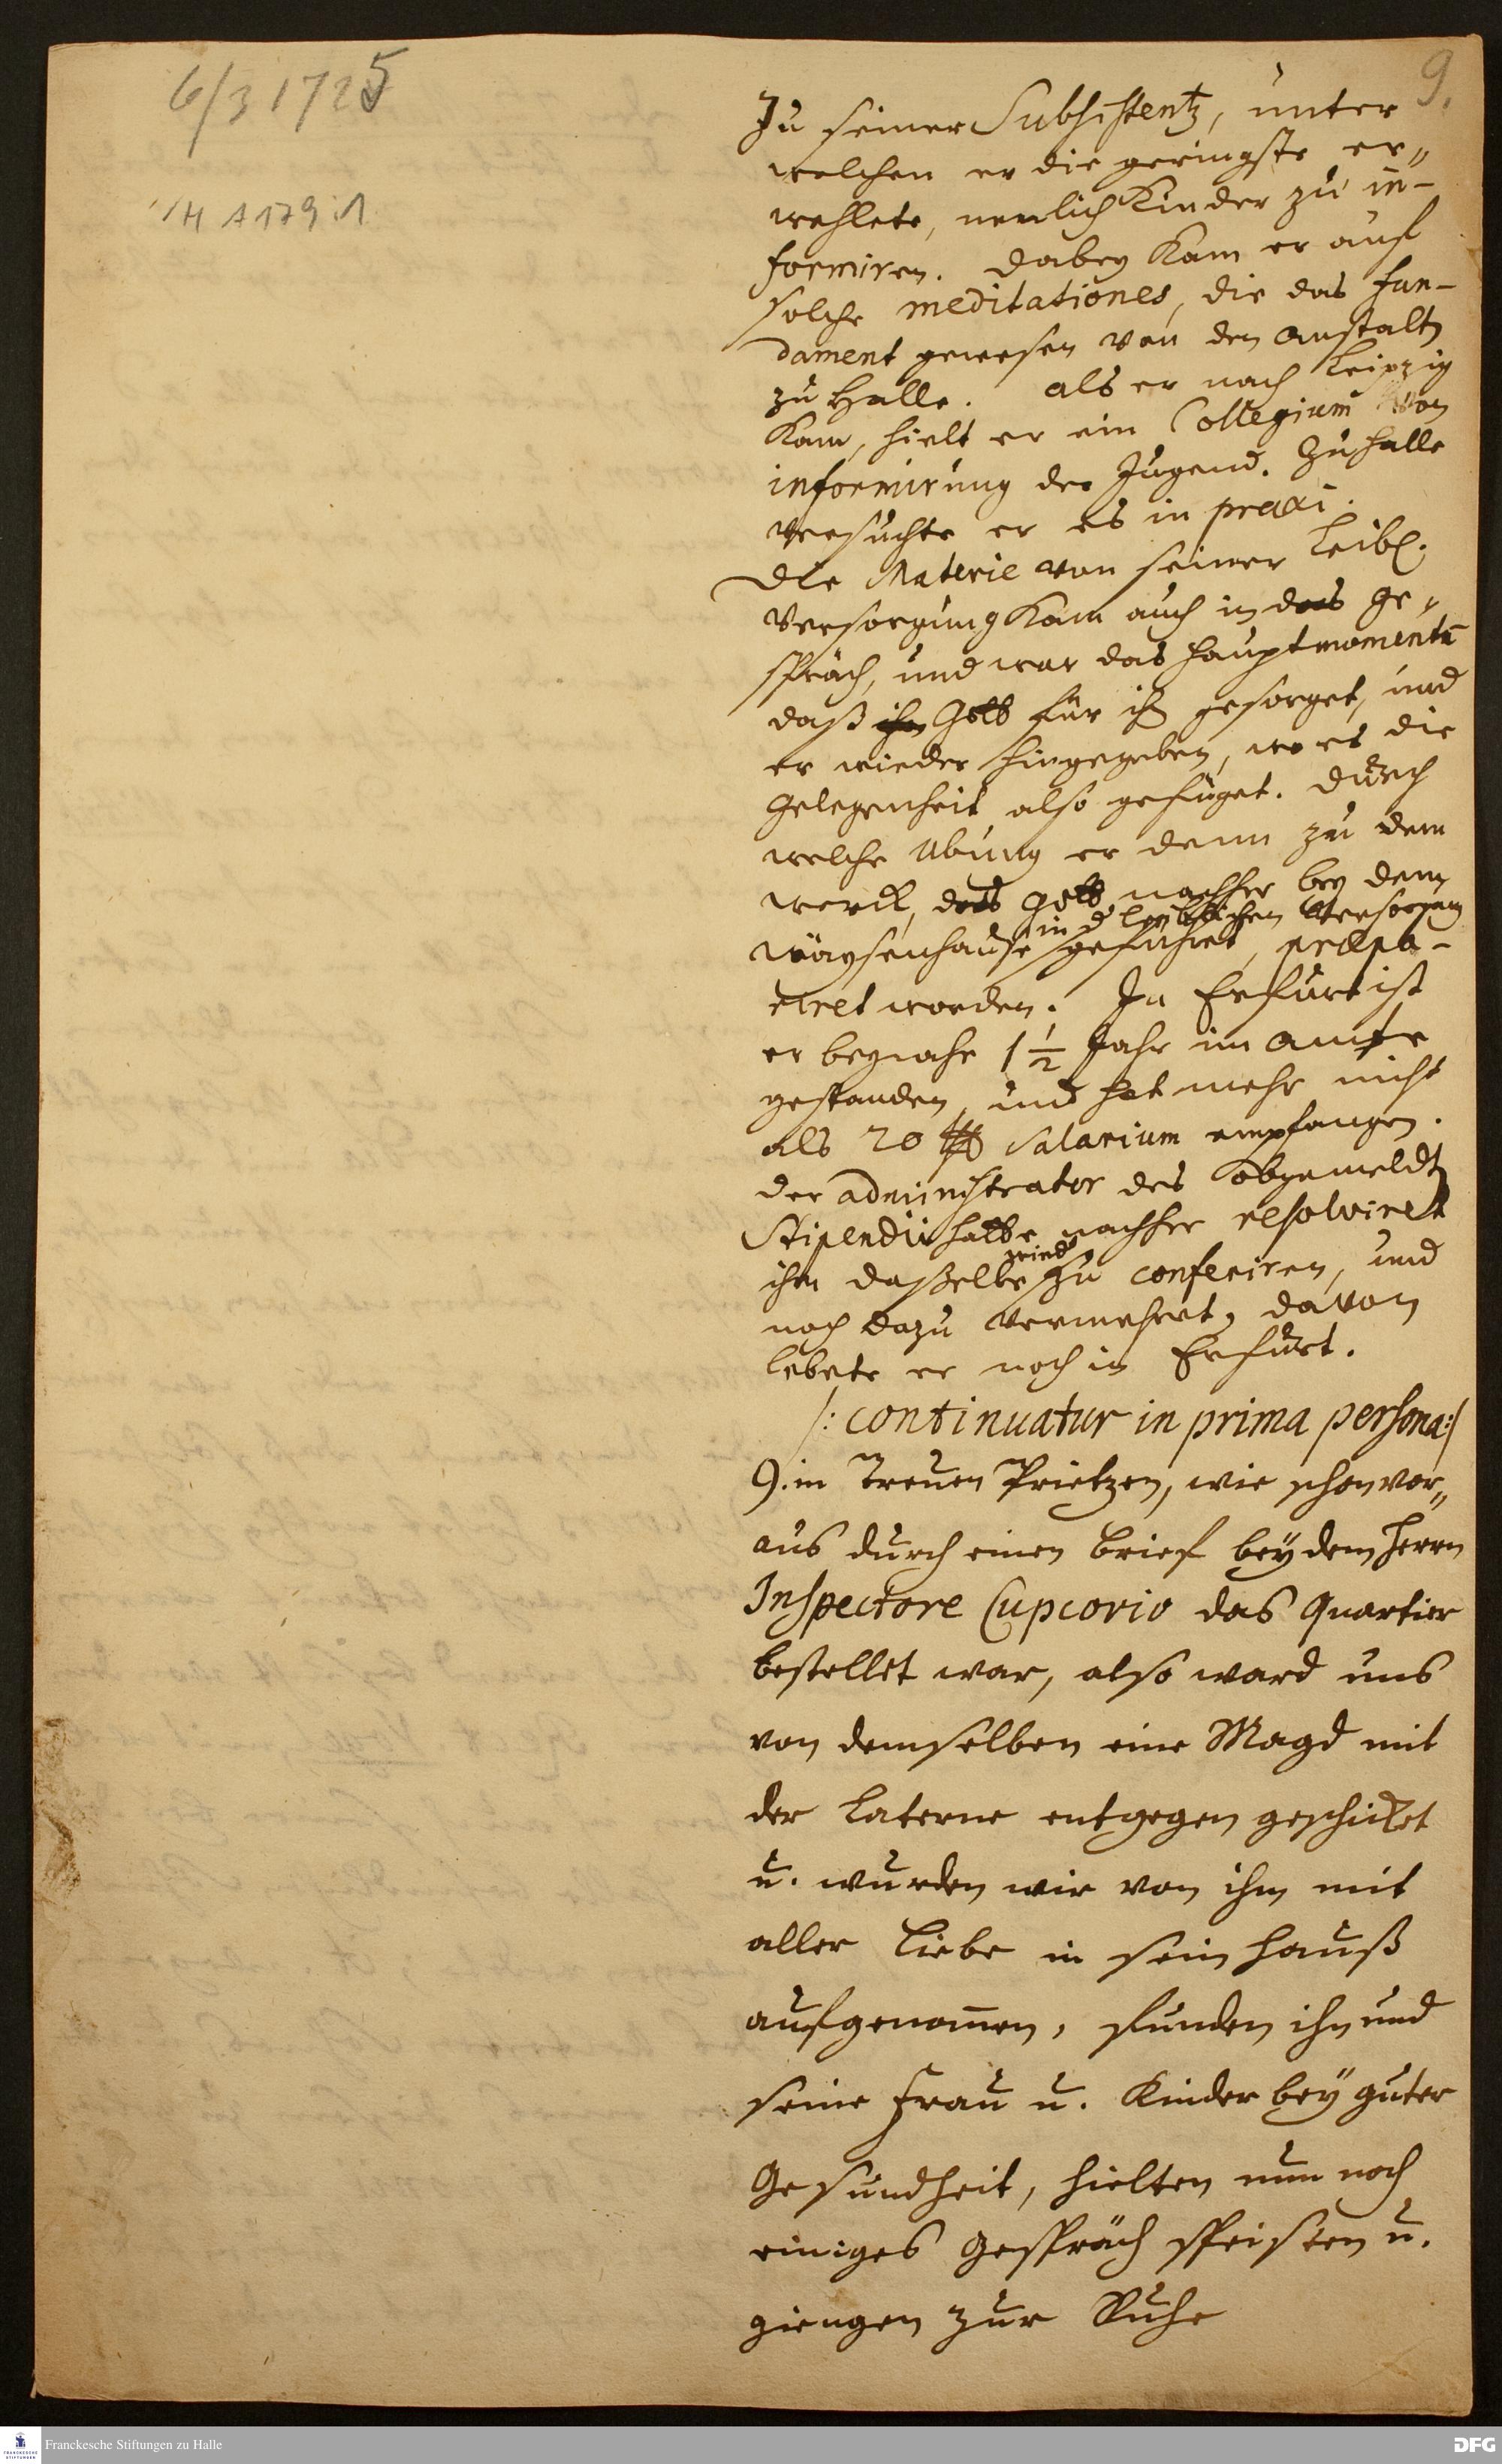 6/3 1725
9.
H A 179:1
Zu seiner Subsistentz, unter
welchen er die geringste er„
wehlete, nemlich Kinder zu in-
formiren. Dabey kam er auf
solche meditationes, die das fun-
dament gewesen von den Anstaltn
zu Halle. Als er nach Leipzig
kam, hielt er ein Collegium von
informirung der Jugend. Zu Halle
versuchte er es in praxi.
Die Materie von seiner leibl.
Versorgung kam auch in das Ge„
spräch, und war das Hauptmomentū
daß ihm Gott für ihn gesorget, und
er wieder hingegeben, wo es die
Gelegenheit also gefüget. Durch
welche Ubung er denn zu dem
werck, das Gott nachher bey dem
in d leiblichen Versorgung
Wäysenhause geführet, præpa-
riret worden. In Erfurt ist
er beynahe 1 1/2 Jahr im Amte
gestanden, und hat mehr nicht
als 20 Salarium empfangen.
der administrator des obgemeldtn
Stipendii hatte nachher resolviret
ihm dasselbe zu conferiren, und
noch dazu vermehret, davon
lebete er noch in Erfurt.
/: continuatur in prima persona:/
9. in Treuen Prietzen, wie schon vor„
aus durch einen Brief bey dem Herrn
Inspectore Cupcovio das Quartier
bestellet war, also ward uns
von demselben eine Magd mit
der Laterne entgegen geschicket
u. wurden wir von ihm mit
aller Liebe in sein Hauß
aufgenom̄en, funden ihn und
seine Frau u. Kinder bey guter
Gesundheit, hielten nun noch
einiges Gespräch speisten u.
giengen zur Ruhe
Franckesche Stiftungen zu Halle
DFG